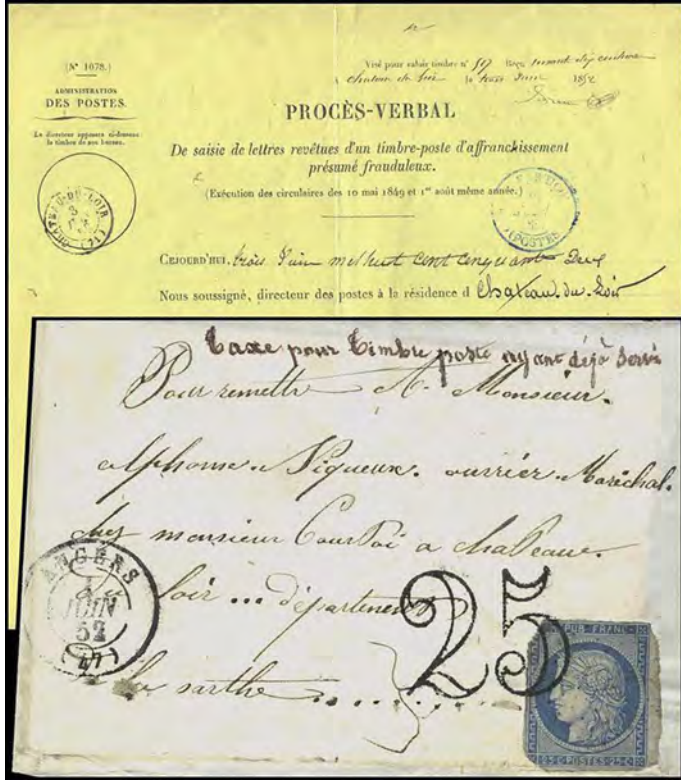 (N° 1078.)
ADMINISTRATION
DES POSTES.
Le directeur apposera ci-dessous
le timbre de son bureau.
CHATEAU-DU-LOIR
(71)
Visé pour valoir timbre n° 517 Reçu
le trois Juin 1852
PROCÈS-VERBAL
De saisie de lettres revêtues d'un timbre-poste d'affranchissement
présumé frauduleux.
(Exécution des circulaires des 10 mai 1849 et 1er août même année.)
(POSTES)
CEJOURD'HUI, trois Juin mil huit cent cinquante Deux
Nous soussigné, directeur des postes à la résidence d Chateau-du-Loir
Taxe pour timbre poste ayant déjà servi
Pour remettre A Monsieur.
Alphonse Viqueux. ouvrier Maréchal.
chez monsieur Courtoi a chateaux.
loir ... département
la sarthe
ANGERS
JUIN
52
(47)
25
REPUB. FRANC.
25 C. POSTES 25 C.